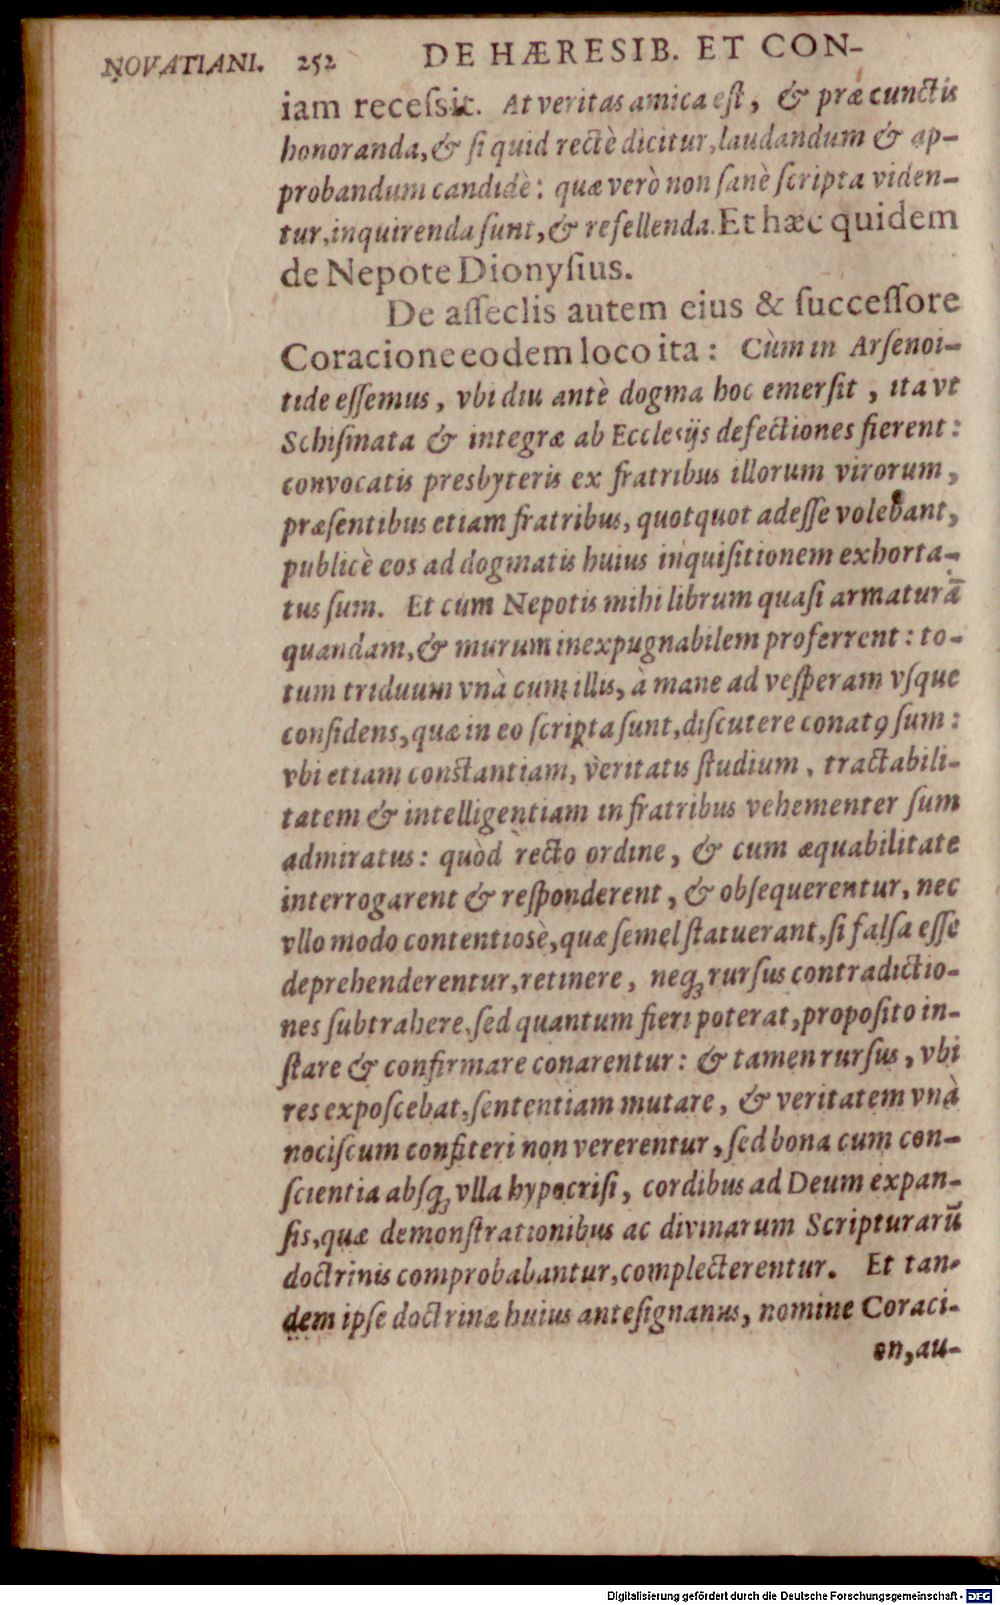 NOVATIANI. 252 DE HÆRESIB. ET CON-
iam receſsit. At veritas amica eſt, & præ cunctis
honoranda, & ſi quid rectè dicitur, laudandum & ap-
probandum candidè: quæ verò non ſanè ſcripta viden-
tur, inquirenda ſunt, & refellenda. Et hæc quidem
de Nepote Dionyſius.
De aſſeclis autem eius & ſucceſſore
Coracione eodem loco ita: Cùm in Arſenoi-
tide eſſemus, vbi diu antè dogma hoc emerſit, ita vt
Schiſmata & integræ ab Eccleſijs defectiones fierent:
convocatis presbyteris ex fratribus illorum virorum,
præſentibus etiam fratribus, quotquot adeſſe volebant,
publicè eos ad dogmatis huius inquiſitionem exhorta-
tus ſum. Et cum Nepotis mihi librum quaſi armaturā
quandam, & murum inexpugnabilem proferrent: to-
tum triduum vnà cum illis, à mane ad veſperam vſque
conſidens, quæ in eo ſcripta ſunt, diſcutere conatꝰ ſum:
vbi etiam constantiam, veritatis ſtudium, tractabili-
tatem & intelligentiam in fratribus vehementer ſum
admiratus: quòd recto ordine, & cum æquabilitate
interrogarent & reſponderent, & obſequerentur, nec
vllo modo contentiosè, quæ ſemel ſtatuerant, ſi falſa eſſe
deprehenderentur, retinere, neqꝫ rurſus contradictio-
nes ſubtrahere, ſed quantum fieri poterat, propoſito in-
ſtare & confirmare conarentur: & tamen rurſus, vbi
res expoſcebat, ſententiam mutare, & veritatem vnà
nociſcum confiteri non vererentur, ſed bona cum con-
ſcientia abſqꝫ vlla hypocriſi, cordibus ad Deum expan-
ſis, quæ demonſtrationibus ac divinarum Scripturarū
doctrinis comprobabantur, complecterentur. Et tan-
dem ipſe doctrinæ huius anteſignanus, nomine Coraci-
on, au-
Digitalisierung gefördert durch die Deutsche Forschungsgemeinschaft - DFG